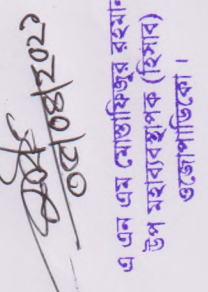 ০৫/০৪/২০২১
এ এন এম মোস্তাফিজুর রহমান
উপ মহাব্যবস্থাপক (হিসাব)
ওজোপাডিকো।